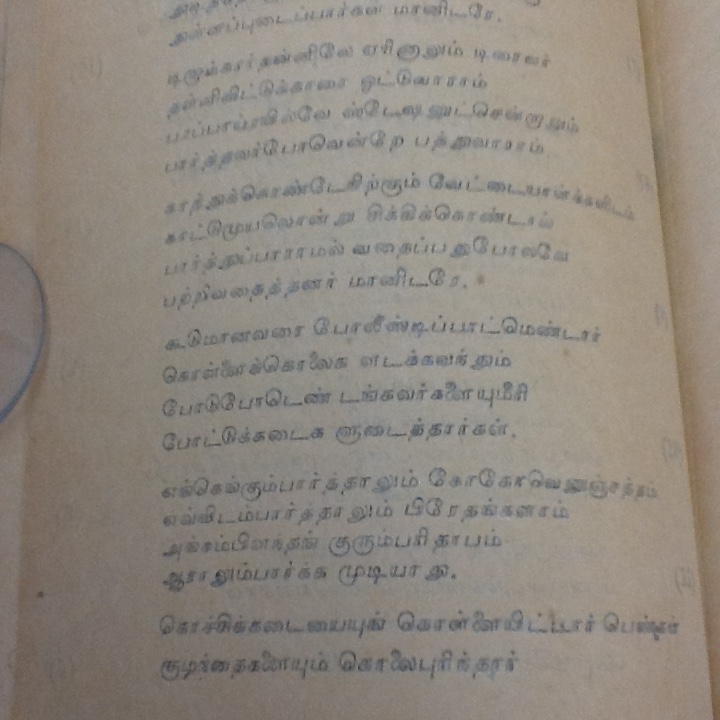 தள்ளப்புடைப்பார்கள் மானிடரே.
டிறாம்கார்தன்னிலே ஏறினாலும் டிரைவர்
தள்ளிவிட்டுக்காரை ஓட்டுவாராம்
பார்த்தவர்போவென்றே பத்துவாராம்
காத்துக்கொண்டேநிற்கும் வேட்டையாள்க்களிடம்
காட்டுமுயலொன்று சிக்கிக்கொண்டால்
பார்த்துப்பாராமல் வதைப்பதுபோலவே
பற்றிவதைத்தனர் மானிடரே.
கூடுமானவரை போலீஸ்டிப்பாட்மெண்டார்
கொள்ளைக்கொலைக ளடக்கவந்தும்
போடுபோடெண் டங்கவர்களையுமீரி
போட்டுக்கடைக ளுடைத்தார்கள்.
எங்கெங்கும்பார்த்தாலும் கோகோவெனுஞ்சத்தம்
எவ்விடம்பார்த்தாலும் பிரேதங்களாம்
அங்கம்பிளந்தங் குரும்பரிதாபம்
ஆராலும்பார்க்க முடியாது.
கொச்சிக்கடையையுங் கொள்ளையிட்டார் பெண்கள்
குழந்தைகளையும் கொலைபுரிந்தார்